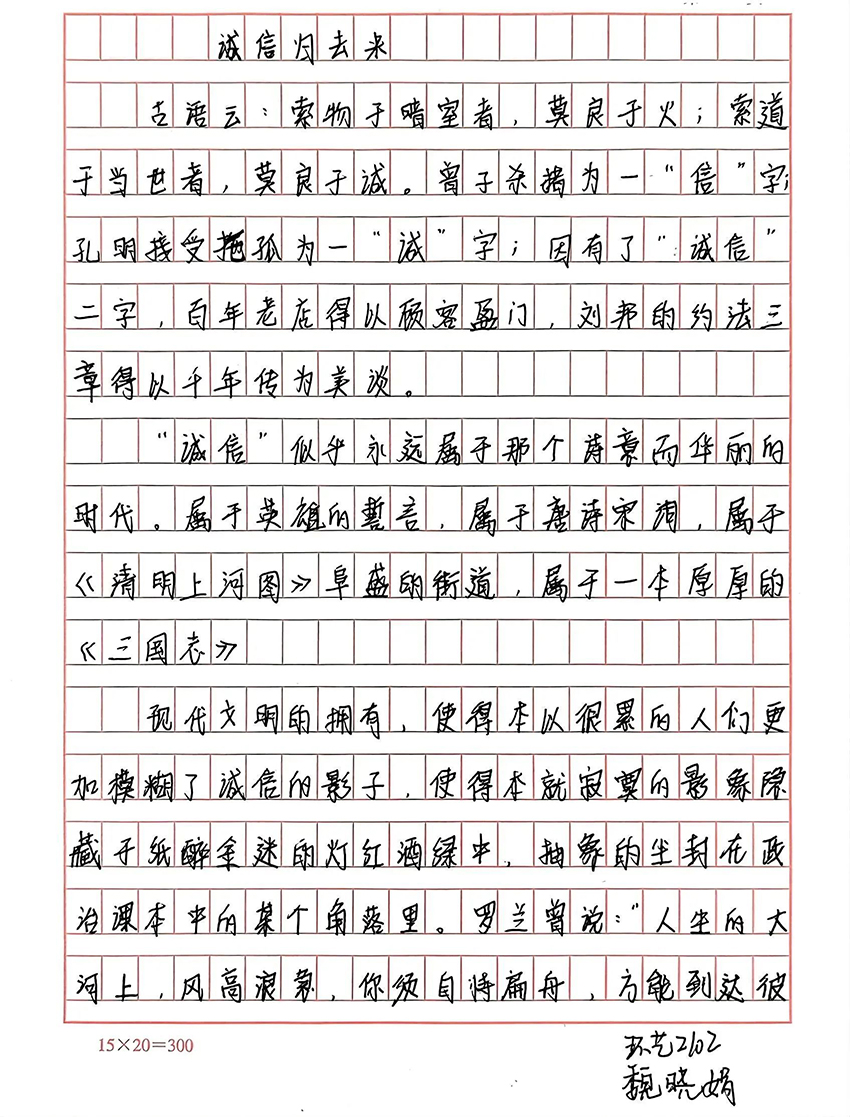 诚信归去来
古语云：索物于暗室者，莫良于火；索道
于当世者，莫良于诚。曾子杀猪为一“信”字；
孔明接受托孤为一“诚”字；因有了“诚信”
二字，百年老店得以顾客盈门，刘邦的约法三
章得以千年传为美谈。
“诚信”似乎永远属于那个诗意而华丽的
时代。属于英雄的誓言，属于唐诗宋词，属于
《清明上河图》阜盛的街道，属于一本厚厚的
《三国志》
现代文明的拥有，使得本以很累的人们更
加模糊了诚信的影子，使得本就寂寞的影象隐
藏于纸醉金迷的灯红酒绿中，抽象的尘封在政
治课本中的某个角落里。罗兰曾说：“人生的大
河上，风高浪急，你须自将扁舟，方能到达彼
15×20=300
环艺2102
魏晓娟